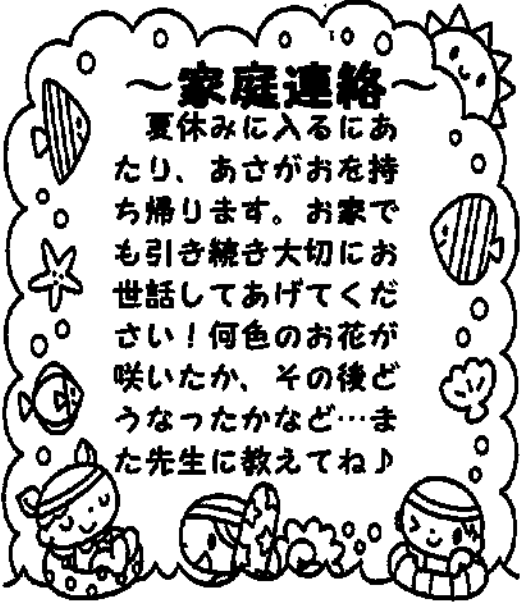 ～家庭連絡～
夏休みに入るにあ
たり、あさがおを持
ち帰ります。お家で
も引き続き大切にお
世話してあげてくだ
さい！何色のお花が
咲いたか、その後ど
うなったかなど…ま
た先生に教えてね♪